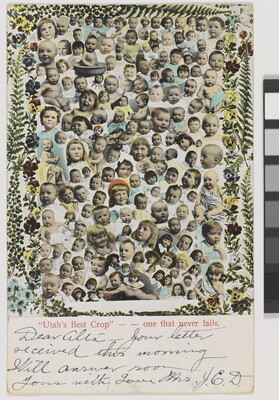 "Utah's Best Crop" — — one that never fails.
Dear Alta – Your letter
received this morning
Will answer soon
Yours with Love Mrs. J. E. D